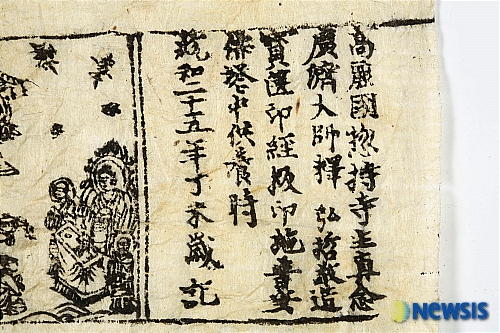 高麗國惣持寺主真念
廣濟大師釋 弘哲敬造
寶篋印經板印施普安
佛塔中供養時
統和二十五年丁未歲記
NEWSIS